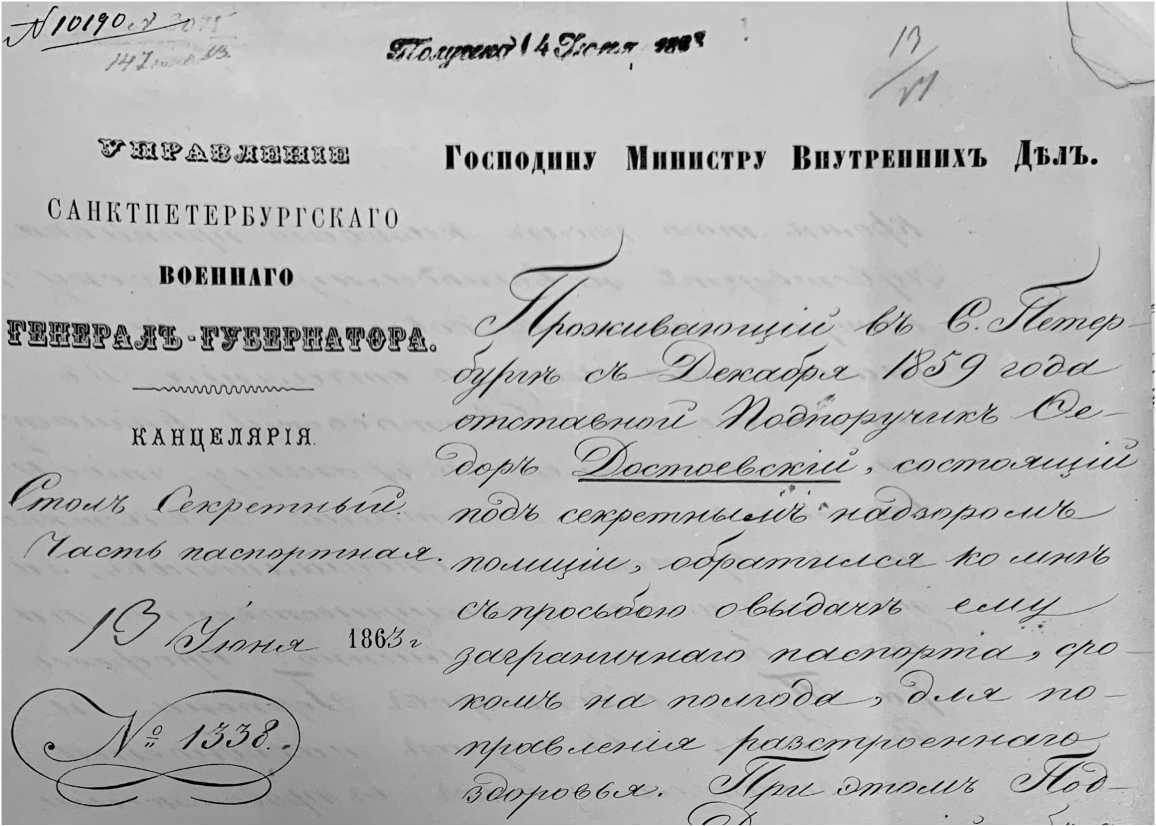 N 10190
14 Июня 63.
Получено 14 Июня 1863
13/VI
УПРАВЛЕНІЕ
САНКТПЕТЕРБУРГСКАГО
ВОЕННАГО
ГЕНЕРАЛЪ-ГУБЕРНАТОРА.
КАНЦЕЛЯРІЯ.
Столъ Секретный.
Часть паспортная.
13 Іюня 1863 г
№ 1338.
ГОСПОДИНУ МИНИСТРУ ВНУТРЕННИХЪ ДѢЛЪ.
Проживающій въ С. Петер-
бургѣ съ Декабря 1859 года
отставной Подпоручикъ Ѳе-
доръ Достоевскій, состоящій
подъ секретнымъ надзоромъ
полиціи, обратился ко мнѣ
съ просьбою о выдачѣ ему
заграничнаго паспорта, сро-
комъ на полгода, для по-
правленія разстроеннаго
здоровья. При этомъ Под-